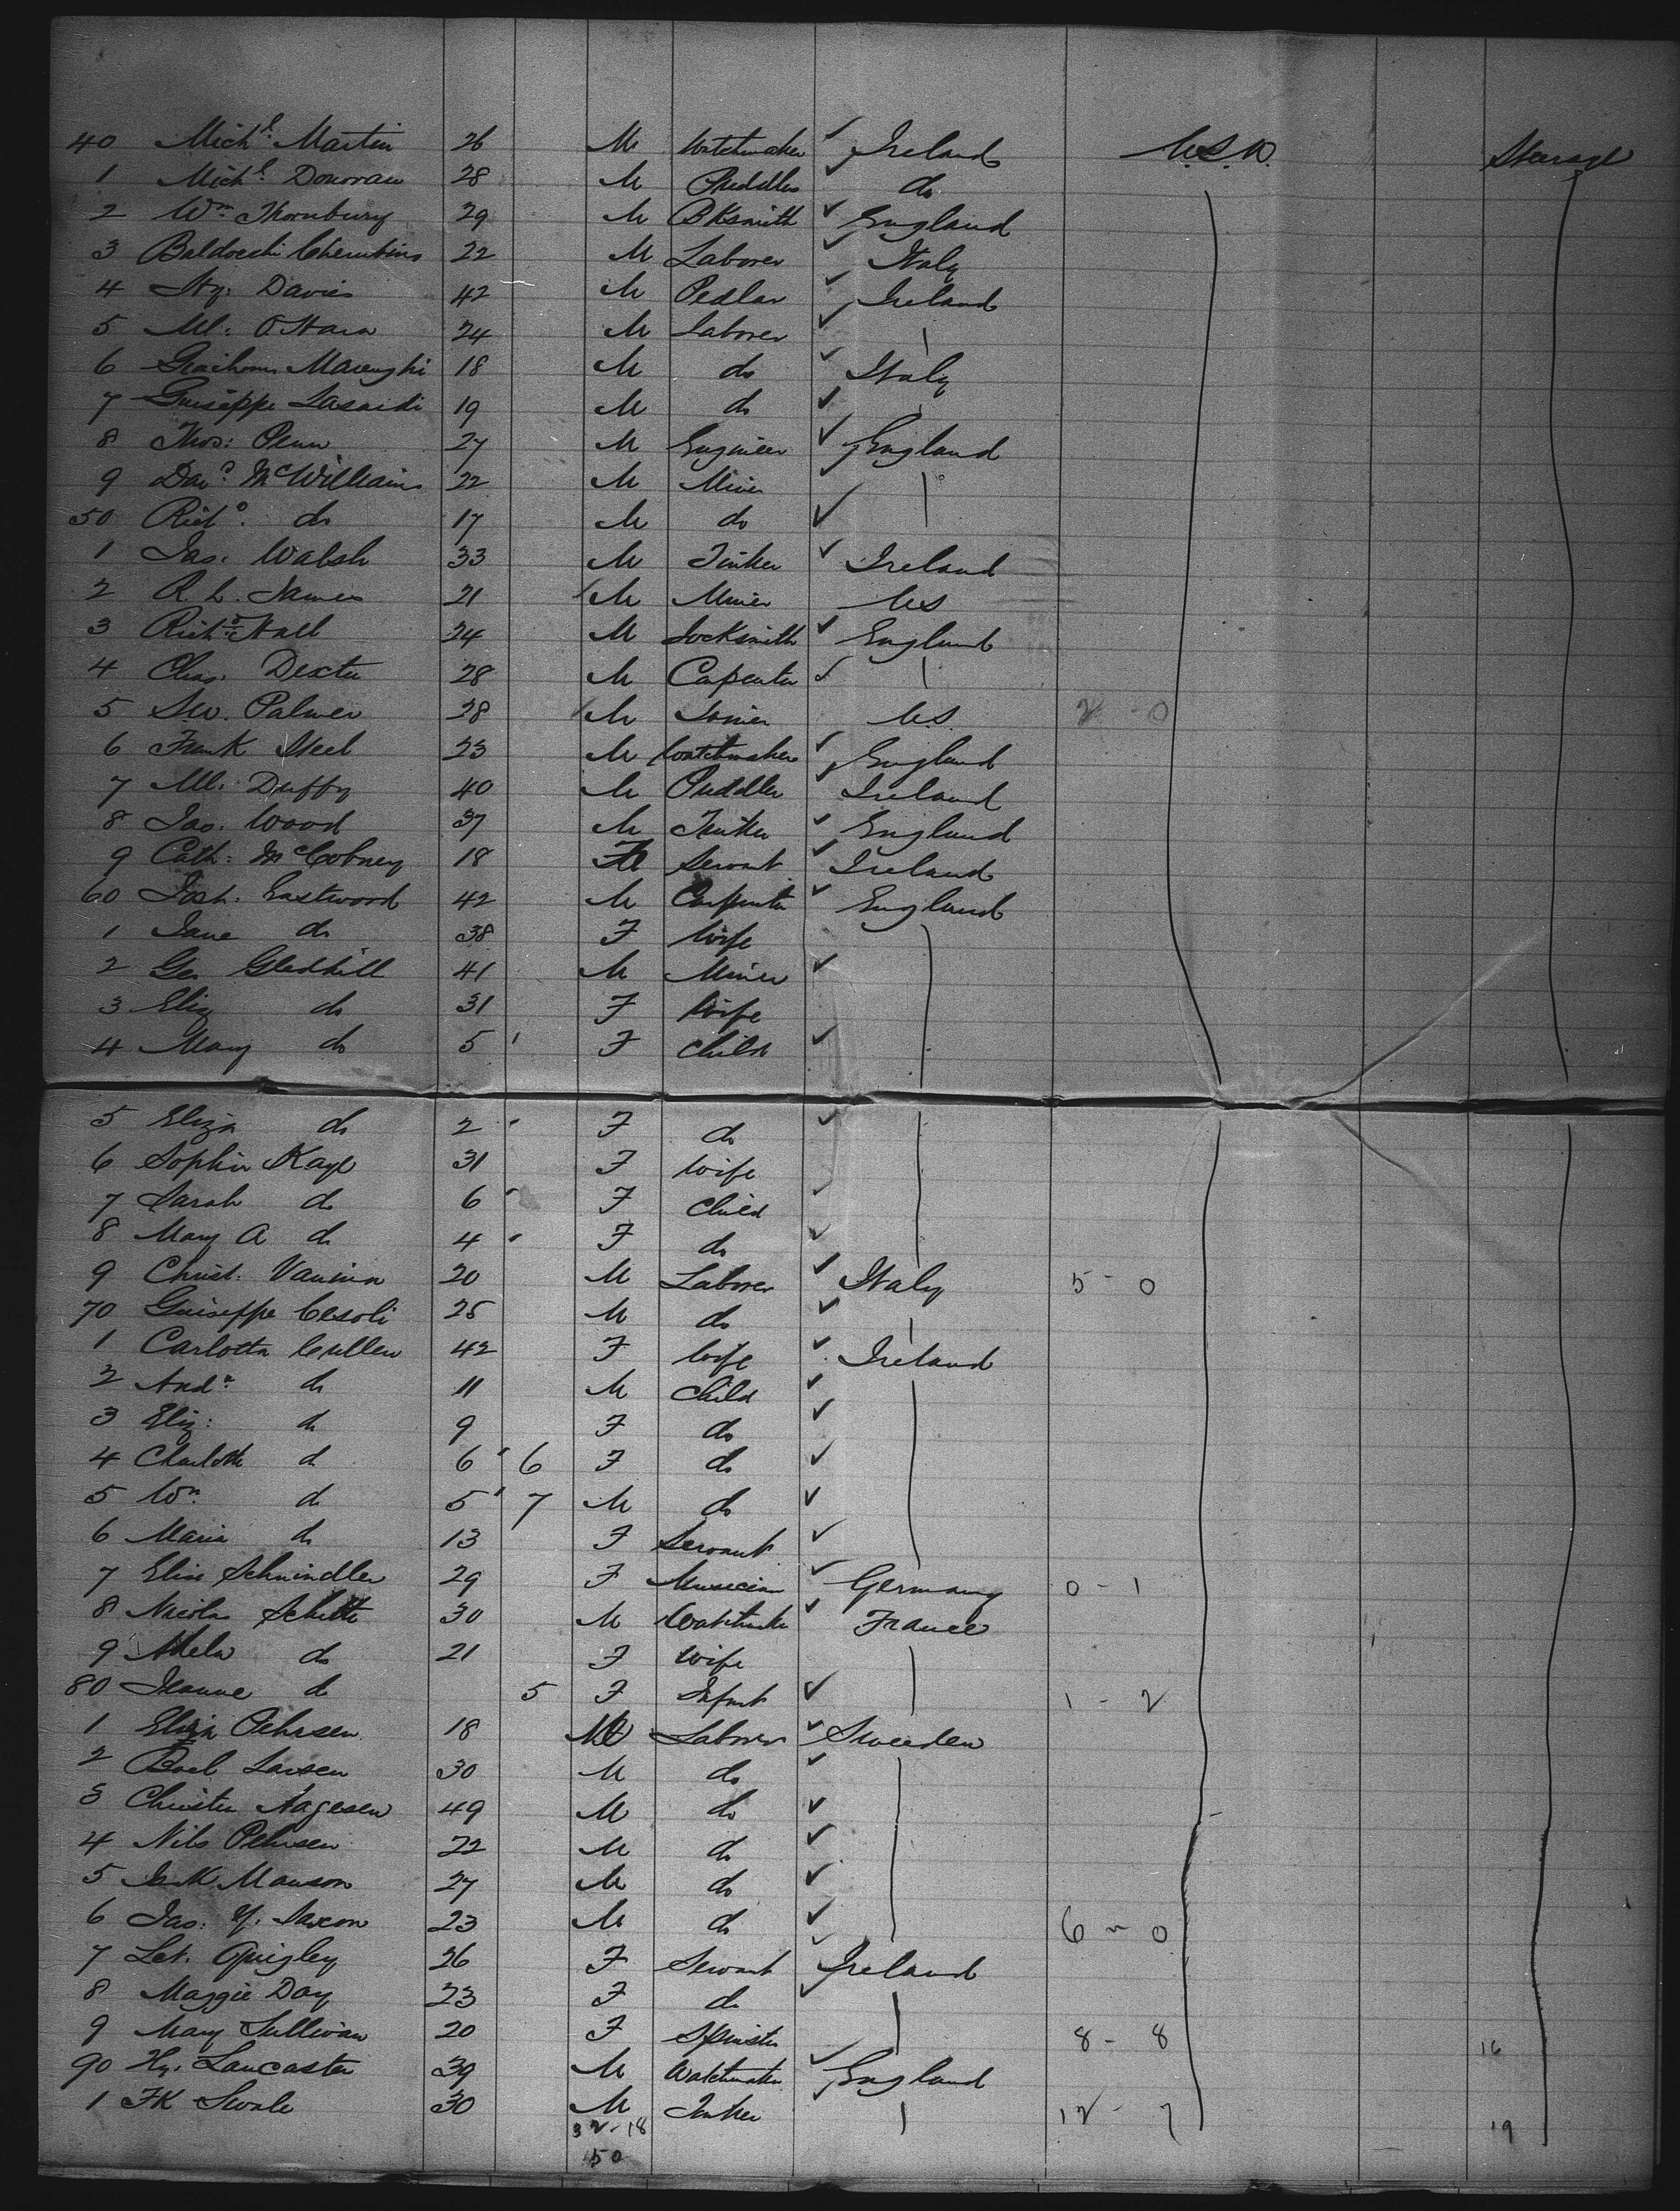 40 Michl. Martin 26 M Watchmaker ✓ Ireland U.S.A. Steerage
1 Michl. Donovan 28 M Puddler ✓ do
2 Wm. Thornbury 29 M BKsmith ✓ England
3 Baldocchi Cherubino 22 M Laborer ✓ Italy
4 Hy: Davies 42 M Pedlar ✓ Ireland
5 Ml: O'Hara 24 M Laborer ✓
6 Marenghi 18 M do ✓ Italy
7 Guiseppe 19 M do ✓
8 Thos: Penn 27 M Engineer ✓ England
9 Davd. McWilliams 22 M Miner ✓
50 Richd. do 17 M do ✓
1 Jas. Walsh 33 M Tinker ✓ Ireland
2 R. L. James 21 M Miner US
3 Richd. Hall 24 M Locksmith ✓ England
4 Chas. Dexter 28 M Carpenter ✓
5 S.W. Palmer 28 M Joiner U.S. 2 - 0
6 Frank Steel 23 M Watchmaker ✓ England
7 Ml. Duffy 40 M Puddler ✓ Ireland
8 Jas. Wood 37 M Tinker ✓ England
9 Cath: 18 F Servant ✓ Ireland
60 Josh. Eastwood 42 M Carpenter ✓ England
1 Jane do 38 F Wife
2 Geo Gledhill 41 M Miner ✓
3 Eliz do 31 F Wife
4 Mary do 5 F Child ✓
5 Eliza do 2 F do ✓
6 Sophia Kaye 31 F Wife
7 Sarah do 6 F Child ✓
8 Mary A do 4 F do ✓
9 Christ. 20 M Laborer ✓ Italy 5 - 0
70 Guiseppe Cesoli 25 M do ✓
1 Carlotta Cullen 42 F Wife ✓ Ireland
2 Andw. do 11 M Child ✓
3 Eliz: do 9 F do ✓
4 Charlotte do 6 6 F do ✓
5 Wm. do 5 7 M do ✓
6 Maria do 13 F Servant ✓
7 Elise Schnindler 29 F Musician ✓ Germany 0 - 1
8 Nicolas 30 M Watchmaker ✓ France
9 do 21 F Wife
80 Jeanne do 5 F Infant ✓ 1 - 2
1 Pehrsen 18 Laborer ✓ Sweeden
2 Larsen 30 M do ✓
3 Christen 49 M do ✓
4 Nils Pehrsen 22 M do ✓
5 Manson 27 M do ✓
6 Jas: Y. 23 M do ✓ 6 - 0
7 Let. Quigley 26 F Servant ✓ Ireland
8 Maggie Day 23 F do ✓
9 Mary Sullivan 20 F Spinster 8 - 8 16
90 Hy. Lancaster 39 M Watchmaker ✓ England
1 FK Swale 30 M Tinker ✓ 12 - 7 19
32-18
50